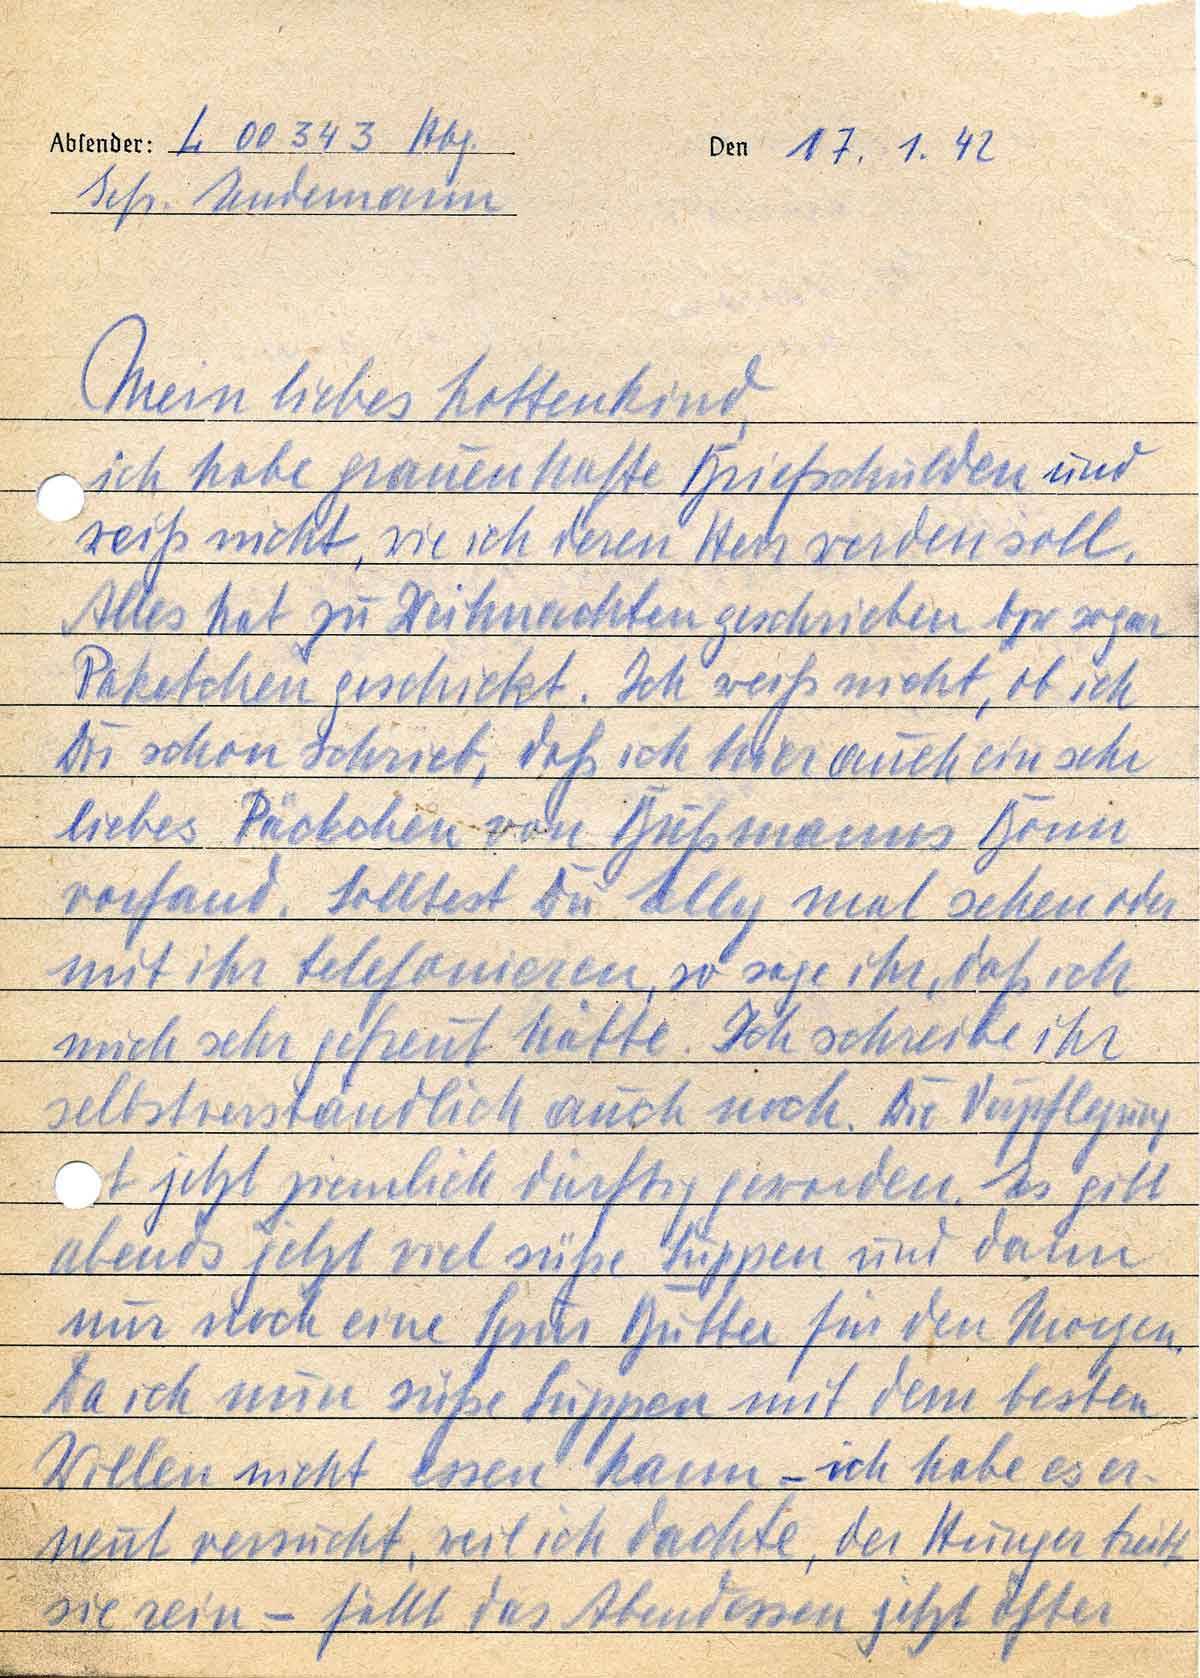 Absender: L 00343 Abg. Den 17. 1. 42
Gefr. Lindemann
Mein liebes Lottenkind,
ich habe grauenhafte Briefschulden und
weiß nicht, wie ich deren Herr werden soll.
Alles hat zu Weihnachten geschrieben bzw sogar
Paketchen geschickt. Ich weiß nicht, ob ich
Dir schon schrieb, daß ich hier auch ein sehr
liebes Päckchen von Bußmanns Bonn
vorfand. Solltest Du Elly mal sehen oder
mit ihr telefonieren, so sage ihr, daß ich
mich sehr gefreut hätte. Ich schreibe ihr
selbstverständlich auch noch. Die Verpflegung
t jetzt ziemlich dürftig geworden. Es gibt
abends jetzt viel süße Suppen und dann
nur noch eine Spur Butter für den Morgen.
Da ich nun süße Suppen mit dem besten
Willen nicht essen kann – ich habe es er-
neut versucht, weil ich dachte, der Hunger treibt
sie rein – fällt das Abendessen jetzt öfter